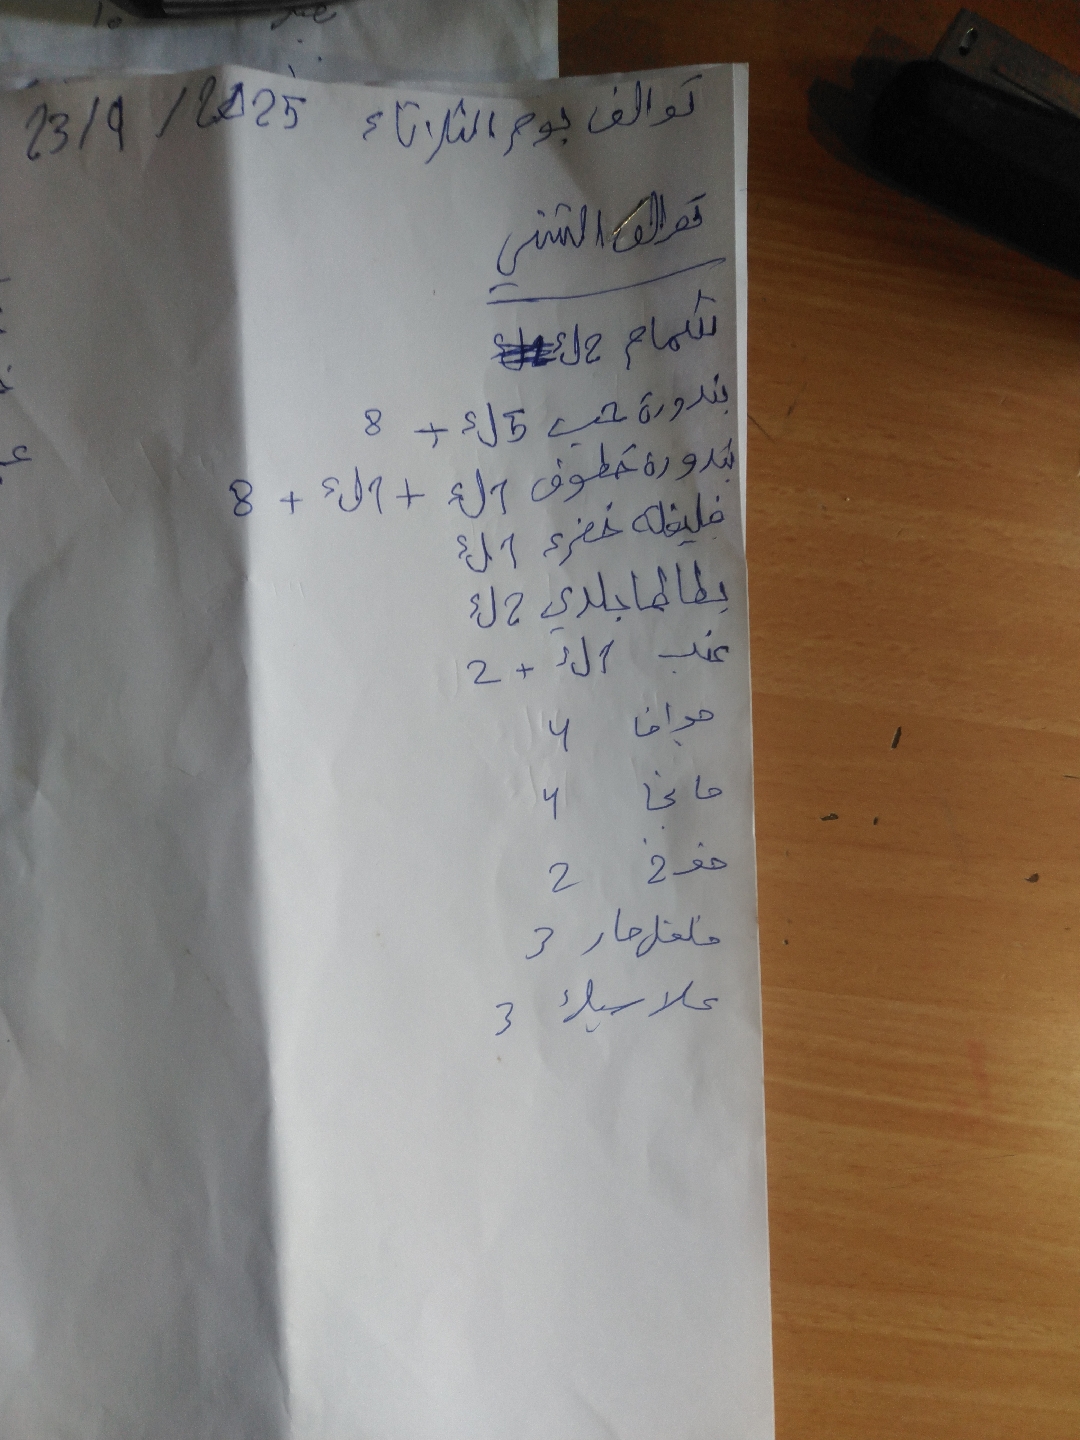 توالف يوم الثلاثاء 23/9/2025
توالف التنني
شمام 2ك
بندورة حب 5ك + 8
بندورة قطوف 1ك + 1ك + 8
فليفله خضرء 1ك
بطاطا بلدي 2ك
عنب 1ك + 2
جوافا 4
مانجا 4
خوخ 2
فلفل حار 3
3